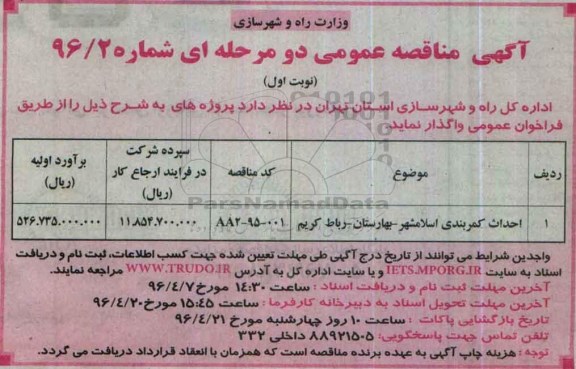 وزارت راه و شهرسازی
آگهی مناقصه عمومی دو مرحله ای شماره ۹۶/۲
(نوبت اول)
اداره کل راه و شهرسازی استان تهران در نظر دارد پروژه های به شرح ذیل را از طریق
فراخوان عمومی واگذار نماید
ردیف موضوع کد مناقصه سپرده شرکت در فرایند ارجاع کار (ریال) برآورد اولیه (ریال)
۱ احداث کمربندی اسلامشهر-بهارستان-رباط کریم ۸۸۲-۹۵-۰۰۱ ۱۱.۸۵۴.۷۰۰.۰۰۰ ۵۲۶.۷۳۵.۰۰۰.۰۰۰
ParsNamadData
واجدین شرایط می توانند از تاریخ درج آگهی طی مهلت تعیین شده جهت کسب اطلاعات، ثبت نام و دریافت
اسناد به سایت IETS.MPORG.IR و یا سایت اداره کل به آدرس WWW.TRUDO.IR مراجعه نمایند.
آخرین مهلت ثبت نام و دریافت اسناد : ساعت ۱۴:۳۰ مورخ ۹۶/۴/۷
آخرین مهلت تحویل اسناد به دبیرخانه کارفرما: ساعت ۱۵:۴۵ مورخ ۹۶/۴/۲۰
تاریخ بازگشایی پاکات : ساعت ۱۰ روز چهارشنبه مورخ ۹۶/۴/۲۱
تلفن تماس جهت پاسخگویی: ۸۸۹۲۱۵۰۵ داخلی ۳۳۲
توجه : هزینه چاپ آگهی به عهده برنده مناقصه است که همزمان با انعقاد قرارداد دریافت می گردد.